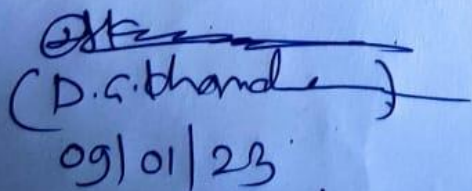 (D.G.Bhande)
09/01/23